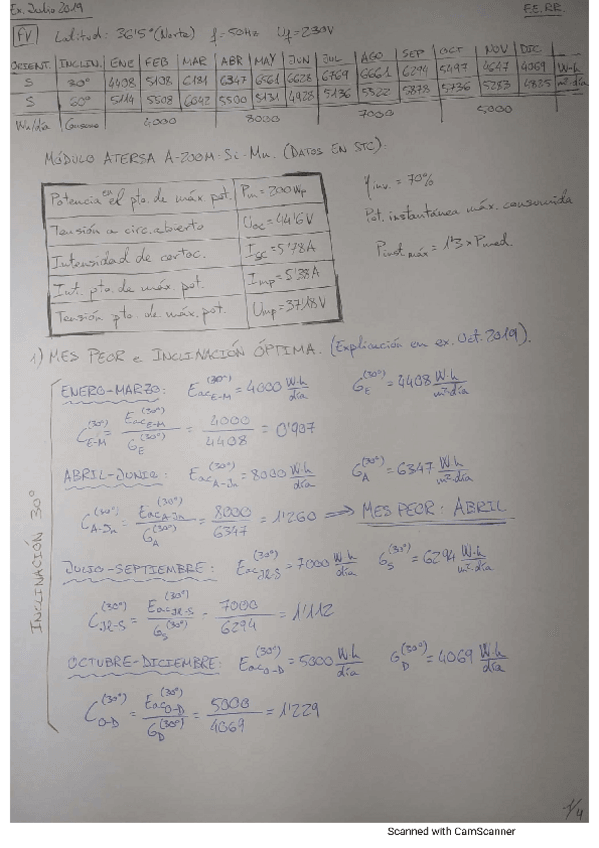 Ex. Julio 2019 EE.RR.
FV Latitud: 36'5° (Norte) f=50Hz Uf=230V
ORIENT. INCLIN. ENE FEB MAR ABR MAY JUN JUL AGO SEP OCT NOV DIC
S 30° 4408 5108 6181 6347 6561 6628 6769 6661 6294 5497 4647 4069 W·h
S 60° 5114 5508 6042 5500 5131 4928 5136 5522 5878 5736 5283 4825 m²·día
Wh/día Consumo 4000 8000 7000 5000
MÓDULO ATERSA A-200M: Si-Mn. (DATOS EN STC):
Potencia en el pto. de máx. pot. Pm = 200Wp
Tensión a circ. abierto Uoc = 44'6V
Intensidad de cortoc. Isc = 5'78A
Int. pto. de máx. pot. Imp = 5'38A
Tensión pto. de máx. pot. Ump = 37'18V
η inv. = 70%
Pot. instantánea máx. consumida
Pinst máx = 1'3 × Pmed.
1) MES PEOR e INCLINACIÓN ÓPTIMA. (Explicación en ex. Oct. 2019).
INCLINACIÓN 30°
ENERO-MARZO: Eac E-M (30°) = 4000 W·h/día G E (30°) = 4408 W·h/m²·día
C E-M (30°) = Eac E-M (30°) / G E (30°) = 4000 / 4408 = 0'907
ABRIL-JUNIO: Eac A-Jn (30°) = 8000 W·h/día G A (30°) = 6347 W·h/m²·día
C A-Jn (30°) = Eac A-Jn (30°) / G A (30°) = 8000 / 6347 = 1'260 ⟹ MES PEOR: ABRIL
JULIO-SEPTIEMBRE: Eac Jl-S (30°) = 7000 W·h/día G S (30°) = 6294 W·h/m²·día
C Jl-S (30°) = Eac Jl-S (30°) / G S (30°) = 7000 / 6294 = 1'112
OCTUBRE-DICIEMBRE: Eac O-D (30°) = 5000 W·h/día G D (30°) = 4069 W·h/m²·día
C O-D (30°) = Eac O-D (30°) / G D (30°) = 5000 / 4069 = 1'229
1/4
Scanned with CamScanner